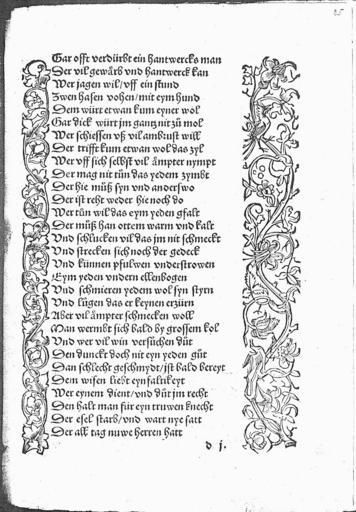 25
Gar offt verdürbt ein hantwercks man
Der vil gewärb vnd hantwerck kan
Wer jagen wil/vff ein stund
Zwen hasen vohen/mit eym hund
Dem würt etwan kum eyner wol
Gar dick würt jm gantz nit zů mol
Wer schiessen vß vil ambrust will
Der trifft kum etwan wol das zyl
Wer vff sich selbst vil ämpter nympt
Der mag nit tůn das yedem zymbt
Der hie můß syn vnd anderswo
Der ist recht weder hie noch do
Wer tůn wil das eym yeden gfalt
Der můß han ottem warm vnd kalt
Vnd schlucken vil das jm nit schmeckt
Vnd strecken sich noch der gedeck
Vnd künnen pfulwen vnderstrowen
Eym yeden vndern ellenbogen
Vnd schmieren yedem wol syn styrn
Vnd lůgen das er keynen erzürn
Aber vil ämpter schmecken woll
Man wermbt sich bald by grossem kol
Vnd wer vil win versůchen důt
Den dunckt doch nit eyn yeden gůt
Dan schlecht geschmydt/jst bald bereyt
Dem wisen liebt eynfaltikeyt
Wer eynem dient/vnd důt jm recht
Den halt man für eyn truwen knecht
Der esel starb/vnd wart nye satt
Der all tag nuwe herren hatt
d j.